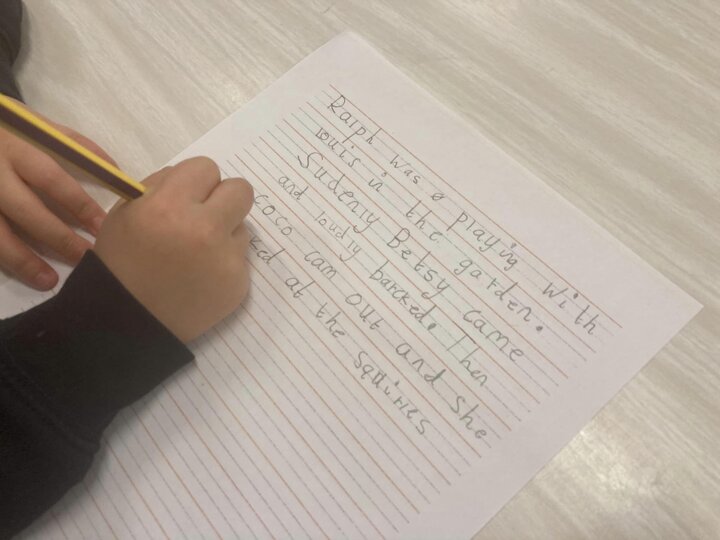 Ralph was a playing with
louis in the garden.
Sudenly Betsy came
and loudly barcked. Then
coco cam out and she
ked at the squires